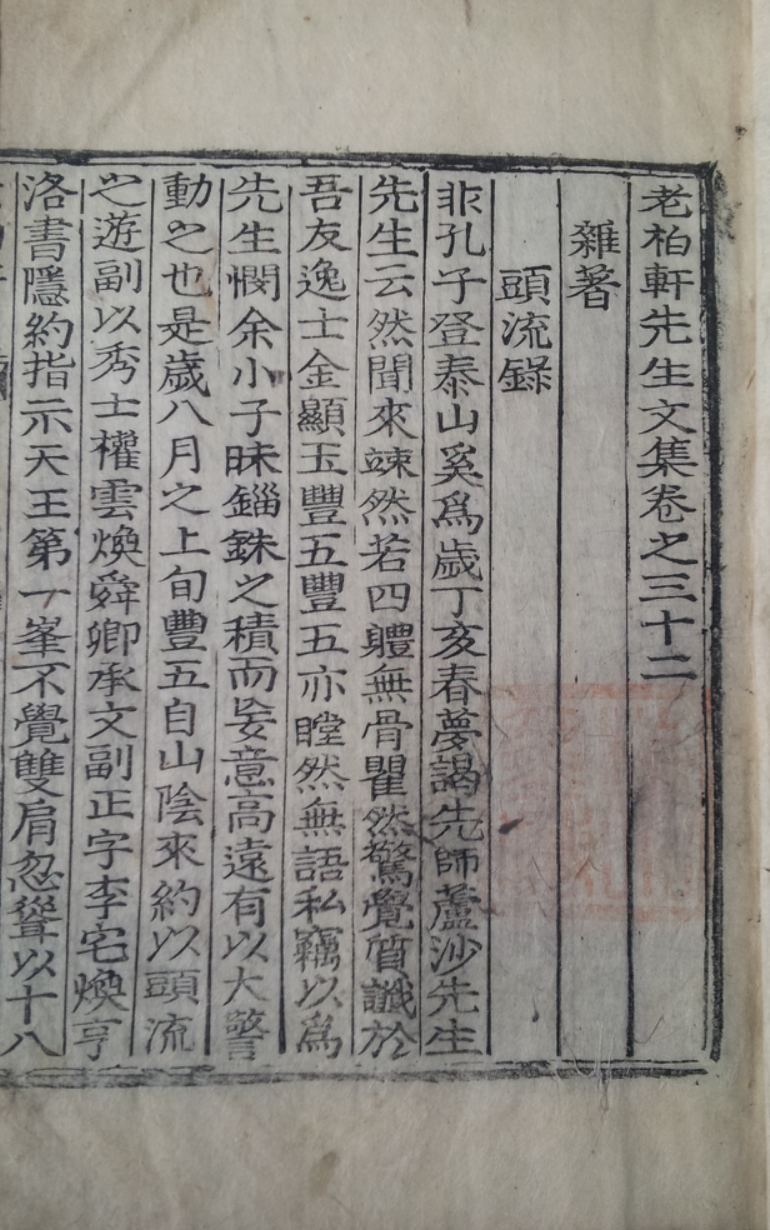 老柏軒先生文集卷之三十二
雜著
頭流錄
非孔子登泰山奚爲歲丁亥春夢謁先師蘆沙先生
先生云然聞來竦然若四軆無骨瞿然驚覺質讖於
吾友逸士金顯玉豐五豐五亦瞠然無語私竊以爲
先生憫余小子昧錙銖之積而妄意高遠有以大警
動之也是歲八月之上旬豐五自山陰來約以頭流
之遊副以秀士權雲煥舜卿承文副正字李宅煥亨
洛書隱約指示天王第一峯不覺雙肩忽聳以十八